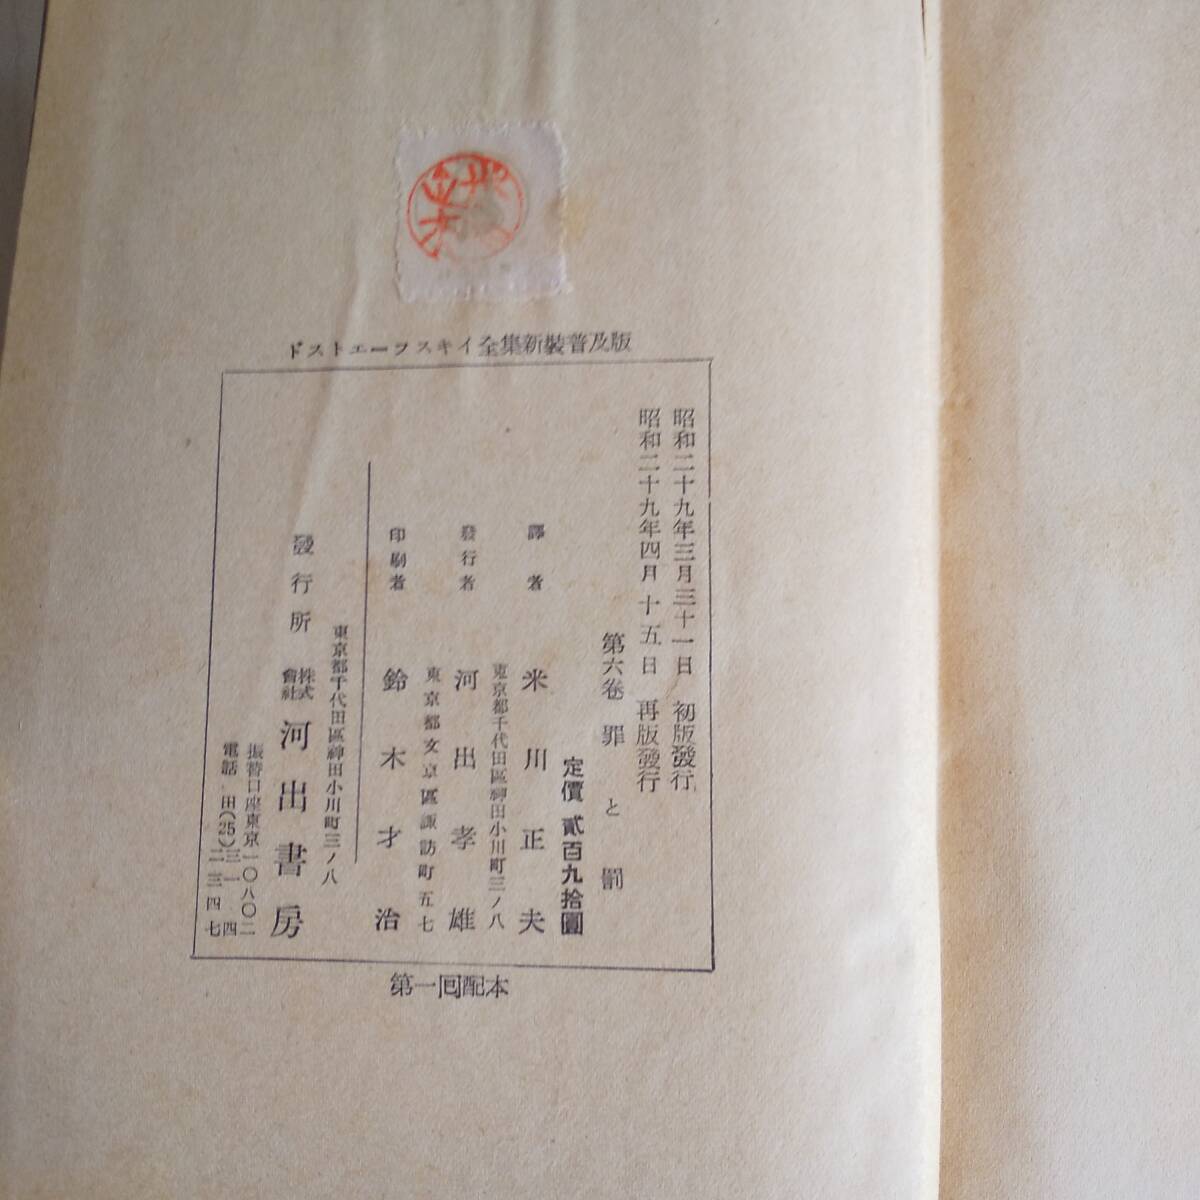 ドストエーフスキイ全集新裝普及版
昭和二十九年三月三十一日 初版發行
昭和二十九年四月十五日 再版發行
第六卷 罪と罰
定價 貳百九拾圓
譯者 米川正夫
東京都千代田區神田小川町三ノ八
發行者 河出孝雄
東京都文京區諏訪町五七
印刷者 鈴木才治
東京都千代田區神田小川町三ノ八
發行所 株式會社 河出書房
振替口座東京一〇八〇二
電話
第一回配本